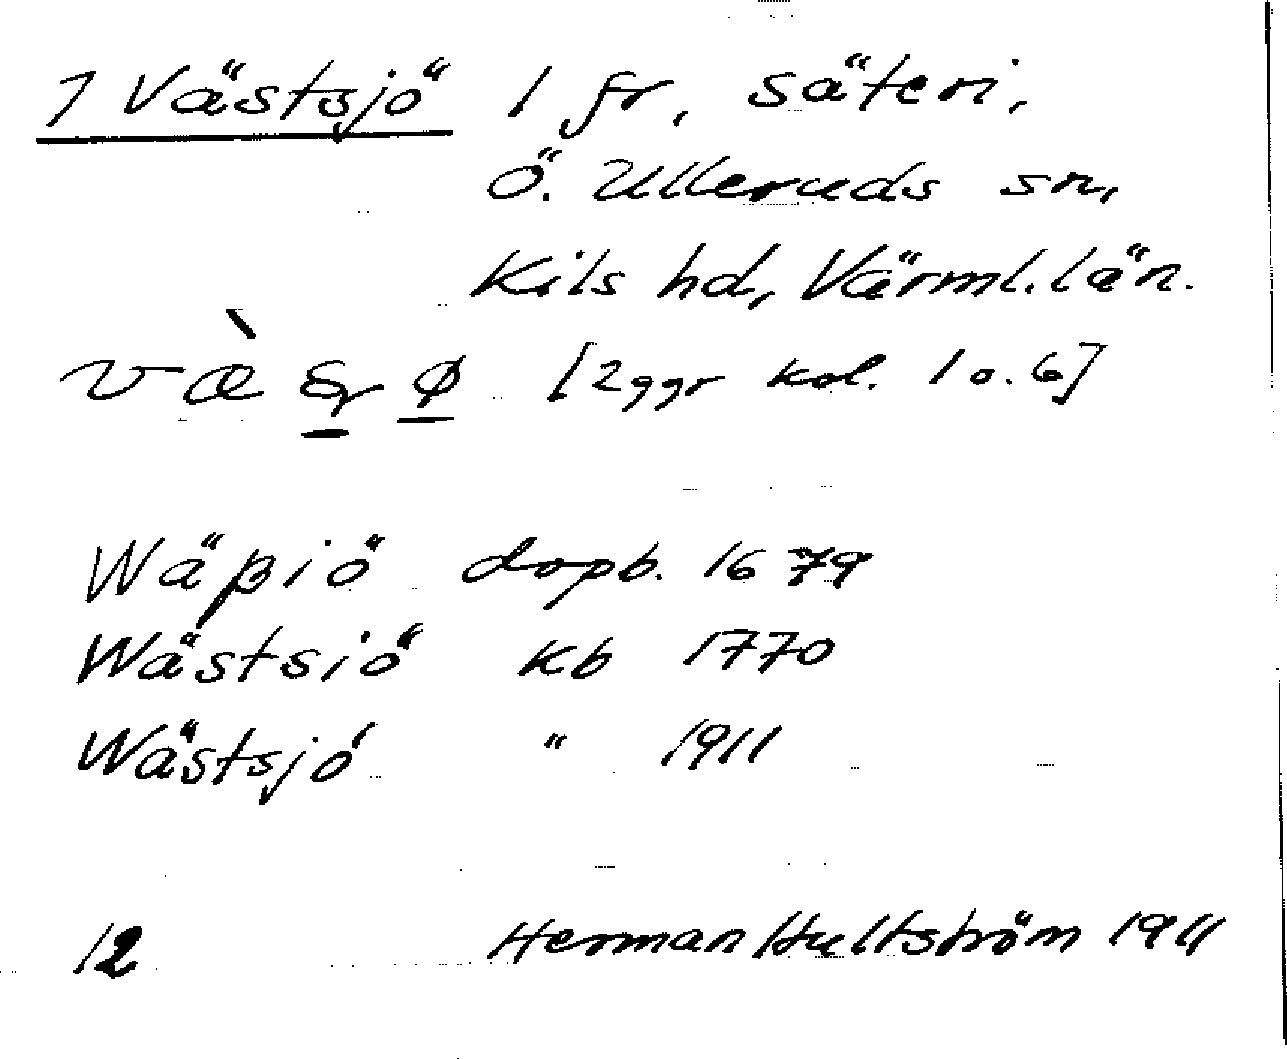 7 Västsjö 1 fr, säteri,
Ö. Ulleruds sn,
Kils hd, Värml. län.
[2 ggr kol. 1 o. 6]
Wäßiö dopb. 1679
Wästsiö kb 1770
Wästsjö " 1911
12 Herman Hultström 1911